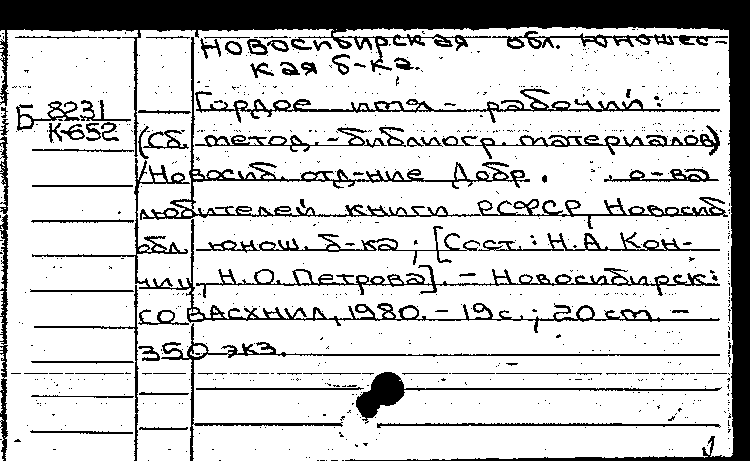 Новосибирская обл. юношес-
кая б-ка.
Гордое имя - рабочий:
Б 8231
К-652
(Сб. метод.-библиогр. материалов)
/Новосиб. отд-ние Добр. о-ва
любителей книги РСФСР, Новосиб
обл. юнош. б-ка; [Сост.: Н.А. Кон-
, Н.О. Петрова]. - Новосибирск:
СО ВАСХНИЛ, 1980. - 19 с.; 20 см. -
350 экз.